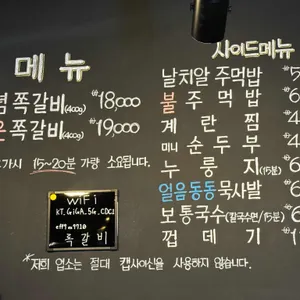 메뉴
념쪽갈비(400g) ₩18,000
은쪽갈비(400g) ₩19,000
가시 15~20분 가량 소요됩니다.
WiFi
KT. GiGA. 5G. CDC1
쪽갈비
사이드메뉴
날치알 주먹밥 ₩5
불주먹밥 ₩6
계란찜
미니 순두부
누룽지(15분)
얼음동동묵사발
보통국수(칼국수면/15분)
껍데기
*저희 업소는 절대 캡사이신을 사용하지 않습니다.